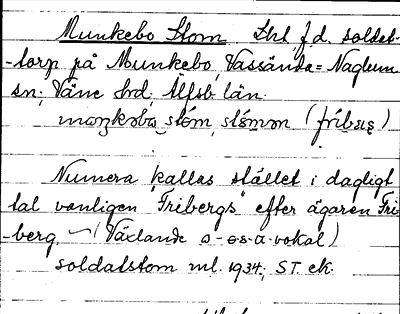 Munkebo Stom Lht f.d. soldat-
-torp på Munkebo, Vassända-Naglum
sn; Väne hd. Älfsb. län.
(fribærs)
Numera kallas stället i dagligt
tal vanligen "Fribergs" efter ägaren Fri-
-berg. (Växlande o-ɵs-a-vokal)
soldatstom ml. 1934; ST. ek.